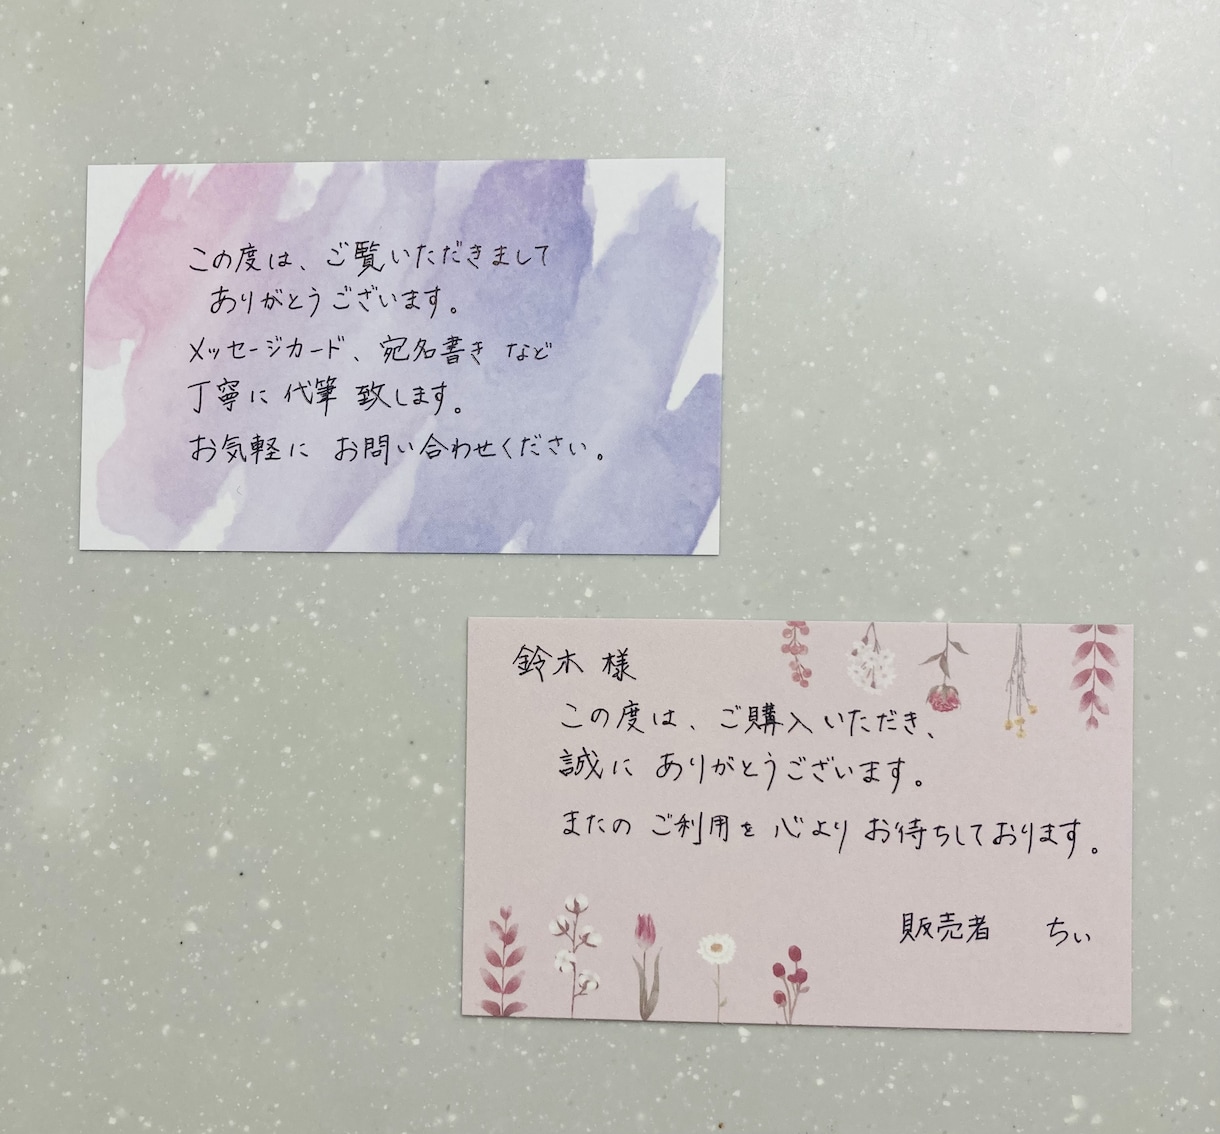 この度は、ご覧いただきまして
ありがとうございます。
メッセージカード、宛名書き など
丁寧に 代筆 致します。
お気軽に お問い合わせください。
鈴木 様
この度は、ご購入いただき、
誠に ありがとうございます。
またの ご利用を 心より お待ちしております。
販売者 ちぃ